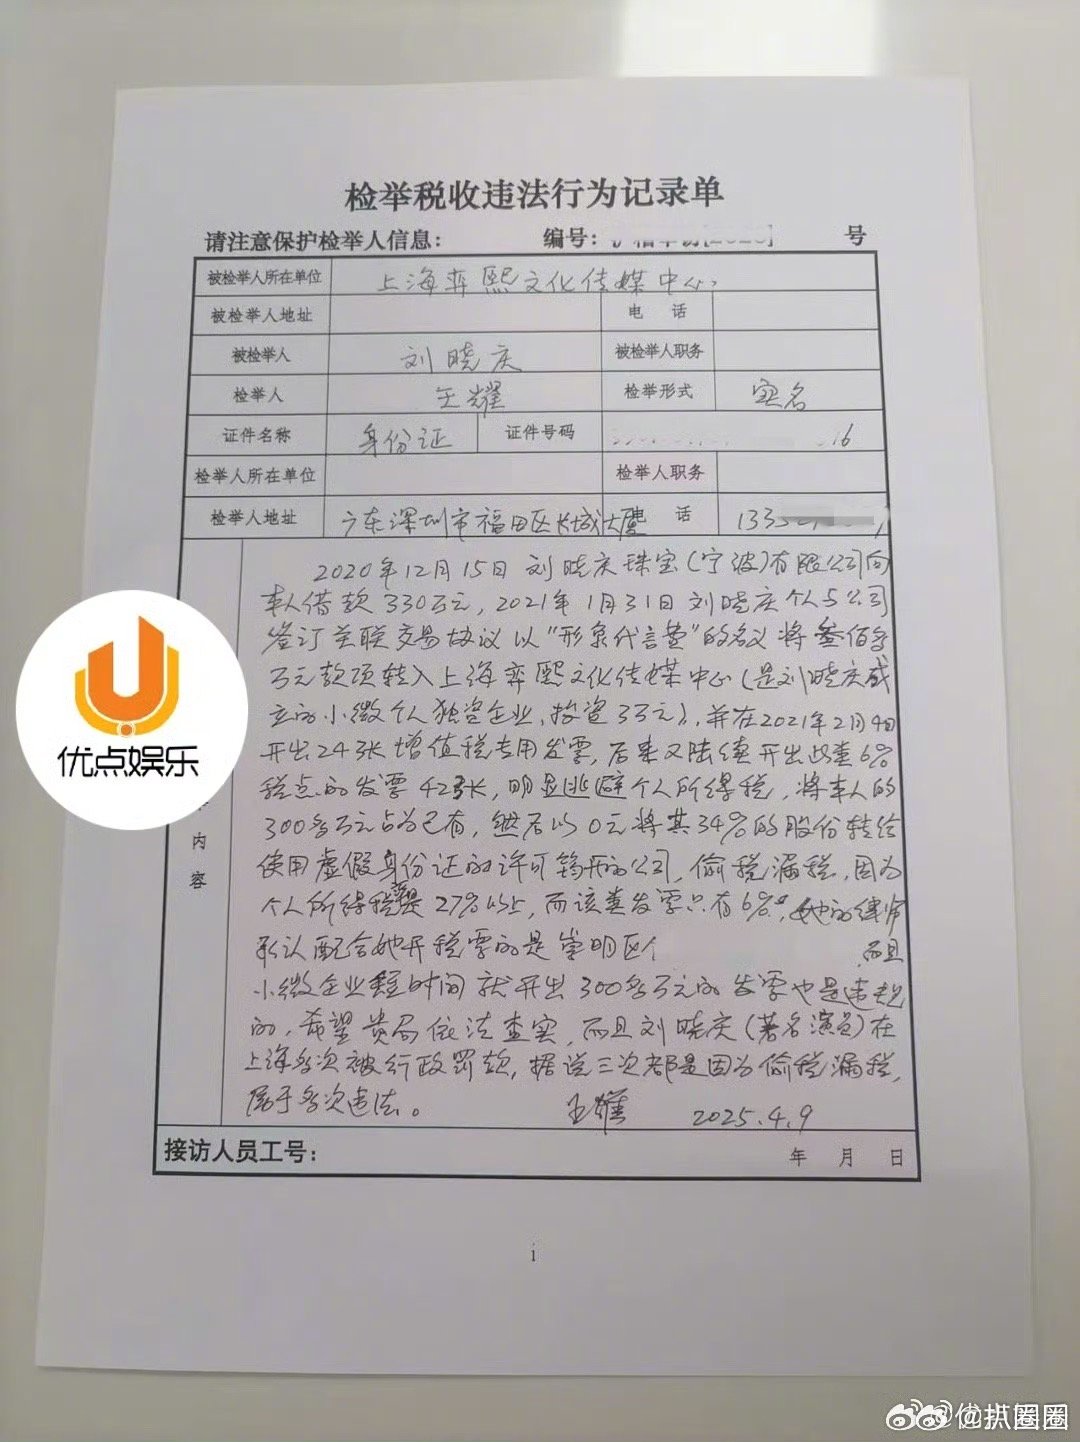 检举税收违法行为记录单
请注意保护检举人信息： 编号： 号
被检举人所在单位 上海弈熙文化传媒中心
被检举人地址 电 话
被检举人 刘晓庆 被检举人职务
检举人 王耀 检举形式 实名
证件名称 身份证 证件号码 16
检举人所在单位 检举人职务
检举人地址 广东深圳市福田区长城大厦 电 话 133
2020年12月15日刘晓庆珠宝(宁波)有限公司向
本人借款330万元，2021年1月31日刘晓庆个人与公司
签订关联交易协议以"形象代言费"的名义将叁佰多
万元款项转入上海弈熙文化传媒中心(是刘晓庆成
立的小微个人独资企业，投资3万元)，并在2021年2月4日
开出24张增值税专用发票，后来又陆续开出此类6%
税点的发票42张，明显逃避个人所得税，将本人的
300多万元占为己有，然后以0元将其34%的股份转给
使用虚假身份证的许可筹开的公司，偷税漏税，因为
个人所得税是27%以上，而该类发票只有6%。她的律师
承认配合她开税票的是崇明区 而且
小微企业短时间就开出300多万元的发票也是违规
的，希望贵局依法查实，而且刘晓庆(著名演员)在
上海多次被行政罚款，据说三次都是因为偷税漏税，
属于多次违法。 王耀 2025.4.9
内
容
接访人员工号： 年 月 日
i
优点娱乐